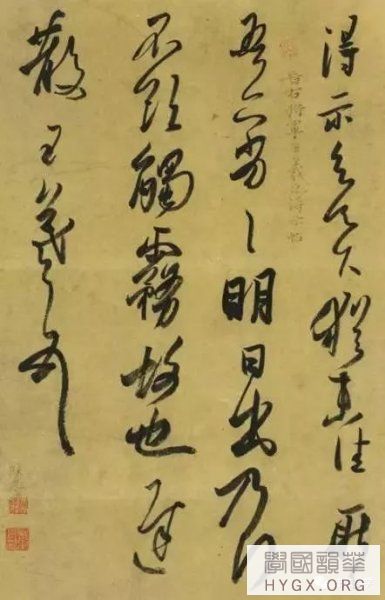 得示知足下猶未佳耿
晉右將軍王羲之得示帖
吾亦劣〻明日出乃行
不欲觸霧故也遲
散王羲之頓首
學國韻華
HYGX.ORG